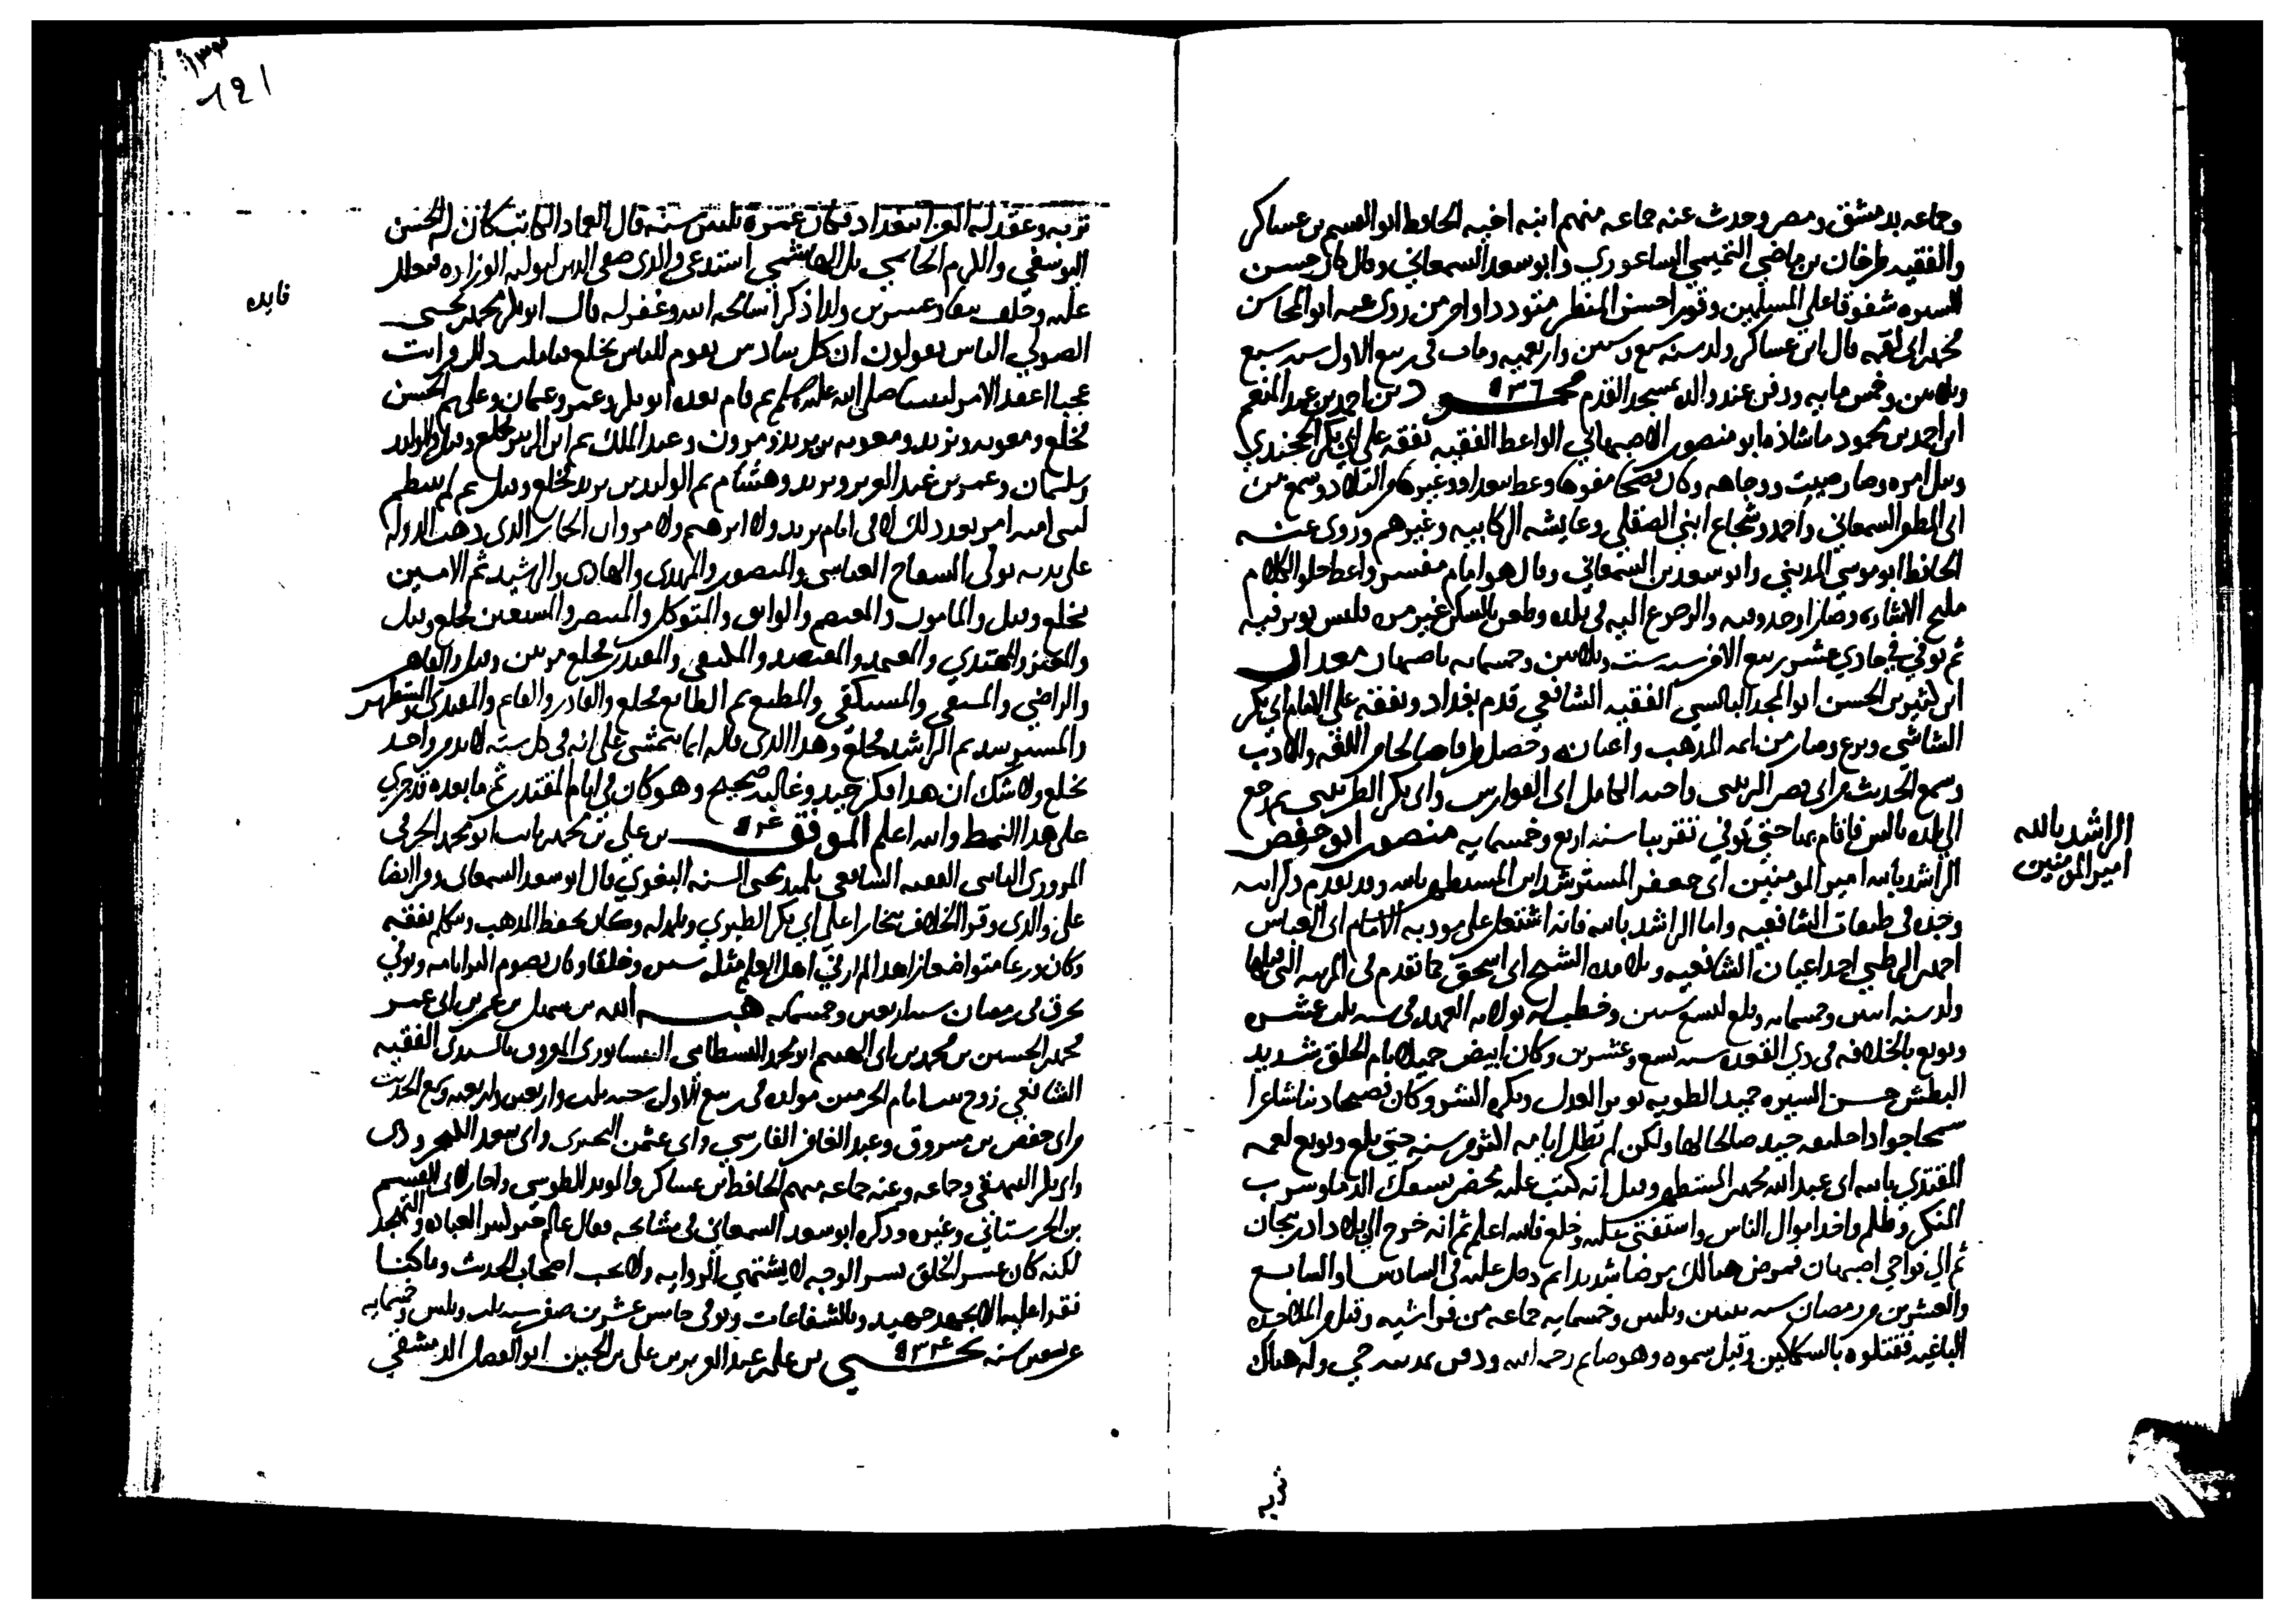 وجماعه بدمشق ومصر وحدث عنه جماعه منهم ابنه اخيه الحافظ ابو القسم بن عساكر
والفقيه طرخان بن ماضي التميمي الساعوري وابو سعد السمعاني وقال كان حسن
السيره شفوقا على المسلمين وقورا حسن المنظر متودد اواخر من روى عنه ابو المحاسن
محمد ابى لقمه قال ابن عساكر ولد سنه سبع وستين واربعميه ومات فى ربيع الاول سنه سبع
وثلاثين وخمس مايه ودفن عند والده بمسجد القدم محمود بن احمد بن عبد المنعم
ابن احمد بن محمود ماشاذه ابو منصور الاصبهاني الواعظ الفقيه تفقه على ابي بكر الخجندي
ونبل امره وصار صيت ووجاهه وكان فصيحا مفوها وعظ ببغداد وغيرها من البلاد وسمع من
ابى المظفر السمعاني واحمد وشجاع ابني الصقلي وعايشه الركابيه وغيرهم وروى عنه
الحافظ ابو موسى المديني وابو سعد بن السمعاني وقال هو امام مفسر واعظ حلو الكلام
مليح الاشاره وصار اوحد وقته والرجوع اليه فى بلده وطعن بالسكين غير مره فليس يوثر فيه
ثم توفي في حادي عشر ربيع الاخر سنه ست وثلاثين وخمسمايه باصبهان معدان
ابن كثير بن الحسن ابو المجد البالسي الفقيه الشافعي قدم بغداد وتفقه على الامام ابي بكر
الشاشي وبرع وصار من ائمه المذهب واعيانه وحصل طرفا صالحا من اللغه والادب
وسمع الحديث من ابى نصر الزينبى واخيه الكامل ابى الفوارس وابى بكر الطريثيثى ثم رجع
الى بلده بالس فاقام بها حتى توفي تقريبا سنه اربع وخمسمايه منصور ابو جعفر
الراشد بالله امير المومنين ابى جعفر المسترشد ابن المستظهر بالله وقد تقدم ذكر ابيه
وجده فى طبقات الشافعيه واما الراشد بالله فانه اشتغل على مودبه الامام ابى العباس
احمد الرطبي احد اعيان الشافعيه وتلامذه الشيخ ابى اسحق كما تقدم فى المرتبه التى قبلها
ولد سنه اثنين وخمسمايه وبلغ لتسع سنين وخطب له بولايه العهد فى سنه ثلث عشره
وبويع بالخلافه فى ذي القعده سنه تسع وعشرين وكان ابيض جميلا تام الخلق شديد
البطش حسن السيره جيد الطويه يوثر العدل ويكره الشر وكان فصيحا دينا شاعرا
سمحا جوادا خليفه جيد صالحا لها ولكن لم تطل ايامه اكثر من سنه حتى خلع وبويع لعمه
المقتدي بالله ابى عبد الله محمد المستظهر وقيل انه كتب عليه محضر بسفك الدما وشرب
المنكر وظلم واخذ اموال الناس واستفتى عليه وخلع فالله اعلم ثم انه خرج الى بلاد ادربيجان
ثم الى نواحي اصبهان فمرض هنالك مرضا شديدا ثم دخل عليه فى السادس او السابع
والعشرين من رمضان سنه ثنتين وثلثين وخمسمايه جماعه من فراشيه وقيل من الملاحده
الباغيه فقتلوه بالسكاكين وقيل سموه وهو صايم رحمه الله ودفن بمدينه جي وله هناك
تربه
الراشد بالله
امير المومنين
تربه وعقد له العزا ببغداد وكان عمره ثلثين سنه قال العماد الكاتب كان له الحسن
اليوسفي والكرم الحاتمي بل الهاشمي استدعى والدى صفى الدين ليوليه الوزاره فتعلل
عليه وخلف نيفا وعشرين ولدا ذكرا سامحه الله وغفر له قال ابو بكر محمد بن يحيى
الصولى الناس يقولون ان كل سادس يقوم للناس يخلع فتاملت ذلك فرايت
عجبا اعقد الامر لنبينا صلى الله عليه وسلم ثم قام بعده ابو بكر وعمر وعثمان وعلى ثم الحسن
فخلع ومعويه ويزيد ومعويه بن يزيد ومرون وعبد الملك ثم ابن الزبير فخلع وقتل والوليد
وسليمان وعمر بن عبد العزيز ويزيد وهشام ثم الوليد بن يزيد فخلع وقتل ثم لم ينتظم
لبنى اميه امر بعد ذلك لا فى ايام يزيد ولا ابرهيم ولا مروان الحمار الذى ذهبت الدوله
على يديه تولى السفاح العباسى والمنصور والمهدى والهادى والرشيد ثم الامين
فخلع وقتل والمامون والمعتصم والواثق والمتوكل والمنتصر والمستعين فخلع وقتل
والمعتز والمهتدي والمعتمد والمعتضد والمكتفى والمقتدر فخلع مرتين وقتل والقاهر
والراضي والمتقي والمستكفي والمطيع ثم الطائع فخلع والقادر والقايم والمقتدى والمستظهر
والمسترشد ثم الراشد فخلع وهذا الذى قاله انما يتمشى على انه فى كل سته لا بد من واحد
يخلع ولا شك ان هذا فكر جيد وغالبه صحيح وهو كان فى ايام المقتدر ثم ما بعده قد جرى
على هذا النمط والله اعلم الموفق بن على بن محمد ثابت ابو محمد الخرقى
المروزى الثابتى الفقيه الشافعى تلميذ محيى السنه البغوي قال ابو سعد السمعانى وقرا ايضا
على والدى وقرا الخلاف ببخارا على ابي بكر الطبري وكان يحفظ المذهب
وكان ورعا متواضعا زاهدا لم ار في اهل العلم مثله وخلقا وكان يصوم اكثر ايامه وتوفي
بخرق فى رمضان سنه اربعين وخمسمايه هبه الله بن سهل بن عمر بن ابى عمر
محمد الحسين بن محمد بن ابى الهيثم ابو محمد البسطامى النيسابورى المعروف بالسيدى الفقيه
الشافعي زوج بنت امام الحرمين مولده فى ربيع الاول سنه ثلث واربعين واربعميه وسمع الحديث
من ابى حفص بن مسروق وعبد الغافر الفارسي وابي عثمن البحيرى وابى سعد الكنجرودى
وابى بكر البيهقى وجماعه وعنه جماعه منهم الحافظ ابن عساكر والمويد الطوسى واجاز لابى القسم
بن الحرستاني وغيره وذكره ابو سعد السمعاني فى مشايخه فقال عالم خير كثير العباده والتهجد
لكنه كان عسر الخلق بسر الوجه لا يشتهى الروايه ولا يحب اصحاب الحديث وما كنا
نقرا عليه الا بجهد جهيد وبالشفاعات وتوفى خامس عشرين صفر سنه ثلث وثلثين وخمسمايه
عن تسعين سنه يحيى بن على عبد العزيز بن على بن الحسين ابو الفضل الدمشقي
فايده